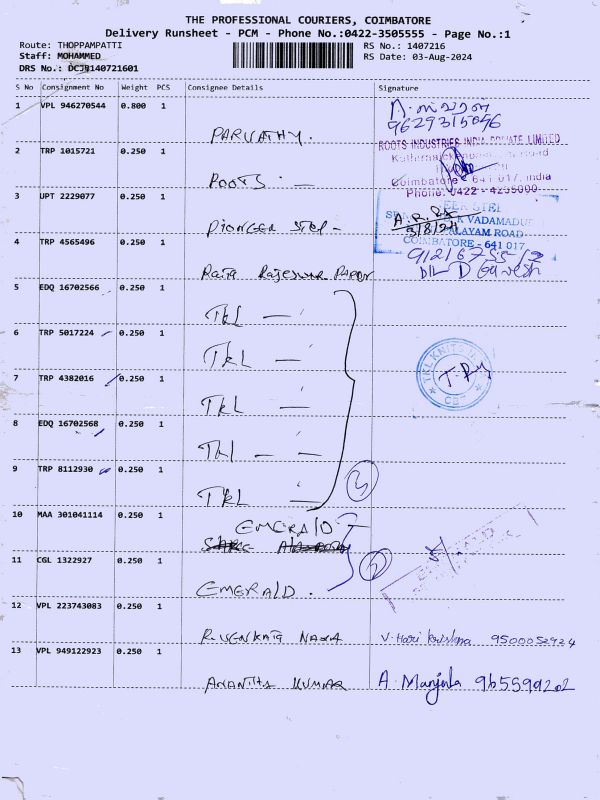 THE PROFESSIONAL COURIERS, COIMBATORE
Delivery Runsheet - PCM - Phone No.:0422-3505555 - Page No.:1
Route: THOPPAMPATTI
Staff: MOHAMMED
DRS No.: DCJN140721601
RS No.: 1407216
RS Date: 03-Aug-2024
S No Consignment No Weight PCS Consignee Details Signature
1 VPL 946270544 0.800 1 PARVATHY.
9629315096
2 TRP 1015721 0.250 1 ROOTS
ROOTS INDUSTRIES INDIA PRIVATE LIMITED
Coimbatore - 641 017, India
Phone: 0422 - 4235000
3 UPT 2229077 0.250 1 PIONEER STEP
VADAMADU
ALAYAM ROAD
COIMBATORE - 641 017
3/8/24
4 TRP 4565496 0.250 1 Rajeswar
5 EDQ 16702566 0.250 1 TKL
6 TRP 5017224 0.250 1 TKL
7 TRP 4382016 0.250 1 TKL
TKL KNITS
CBT
8 EDQ 16702568 0.250 1 TKL
9 TRP 8112930 0.250 1 TKL
10 MAA 301041114 0.250 1 EMERALD
11 CGL 1322927 0.250 1 EMERALD.
12 VPL 223743083 0.250 1 R. VENKATA V. Hari Krishna 9500052924
13 VPL 949122923 0.250 1 ANANTHA KUMAR A. Manjula